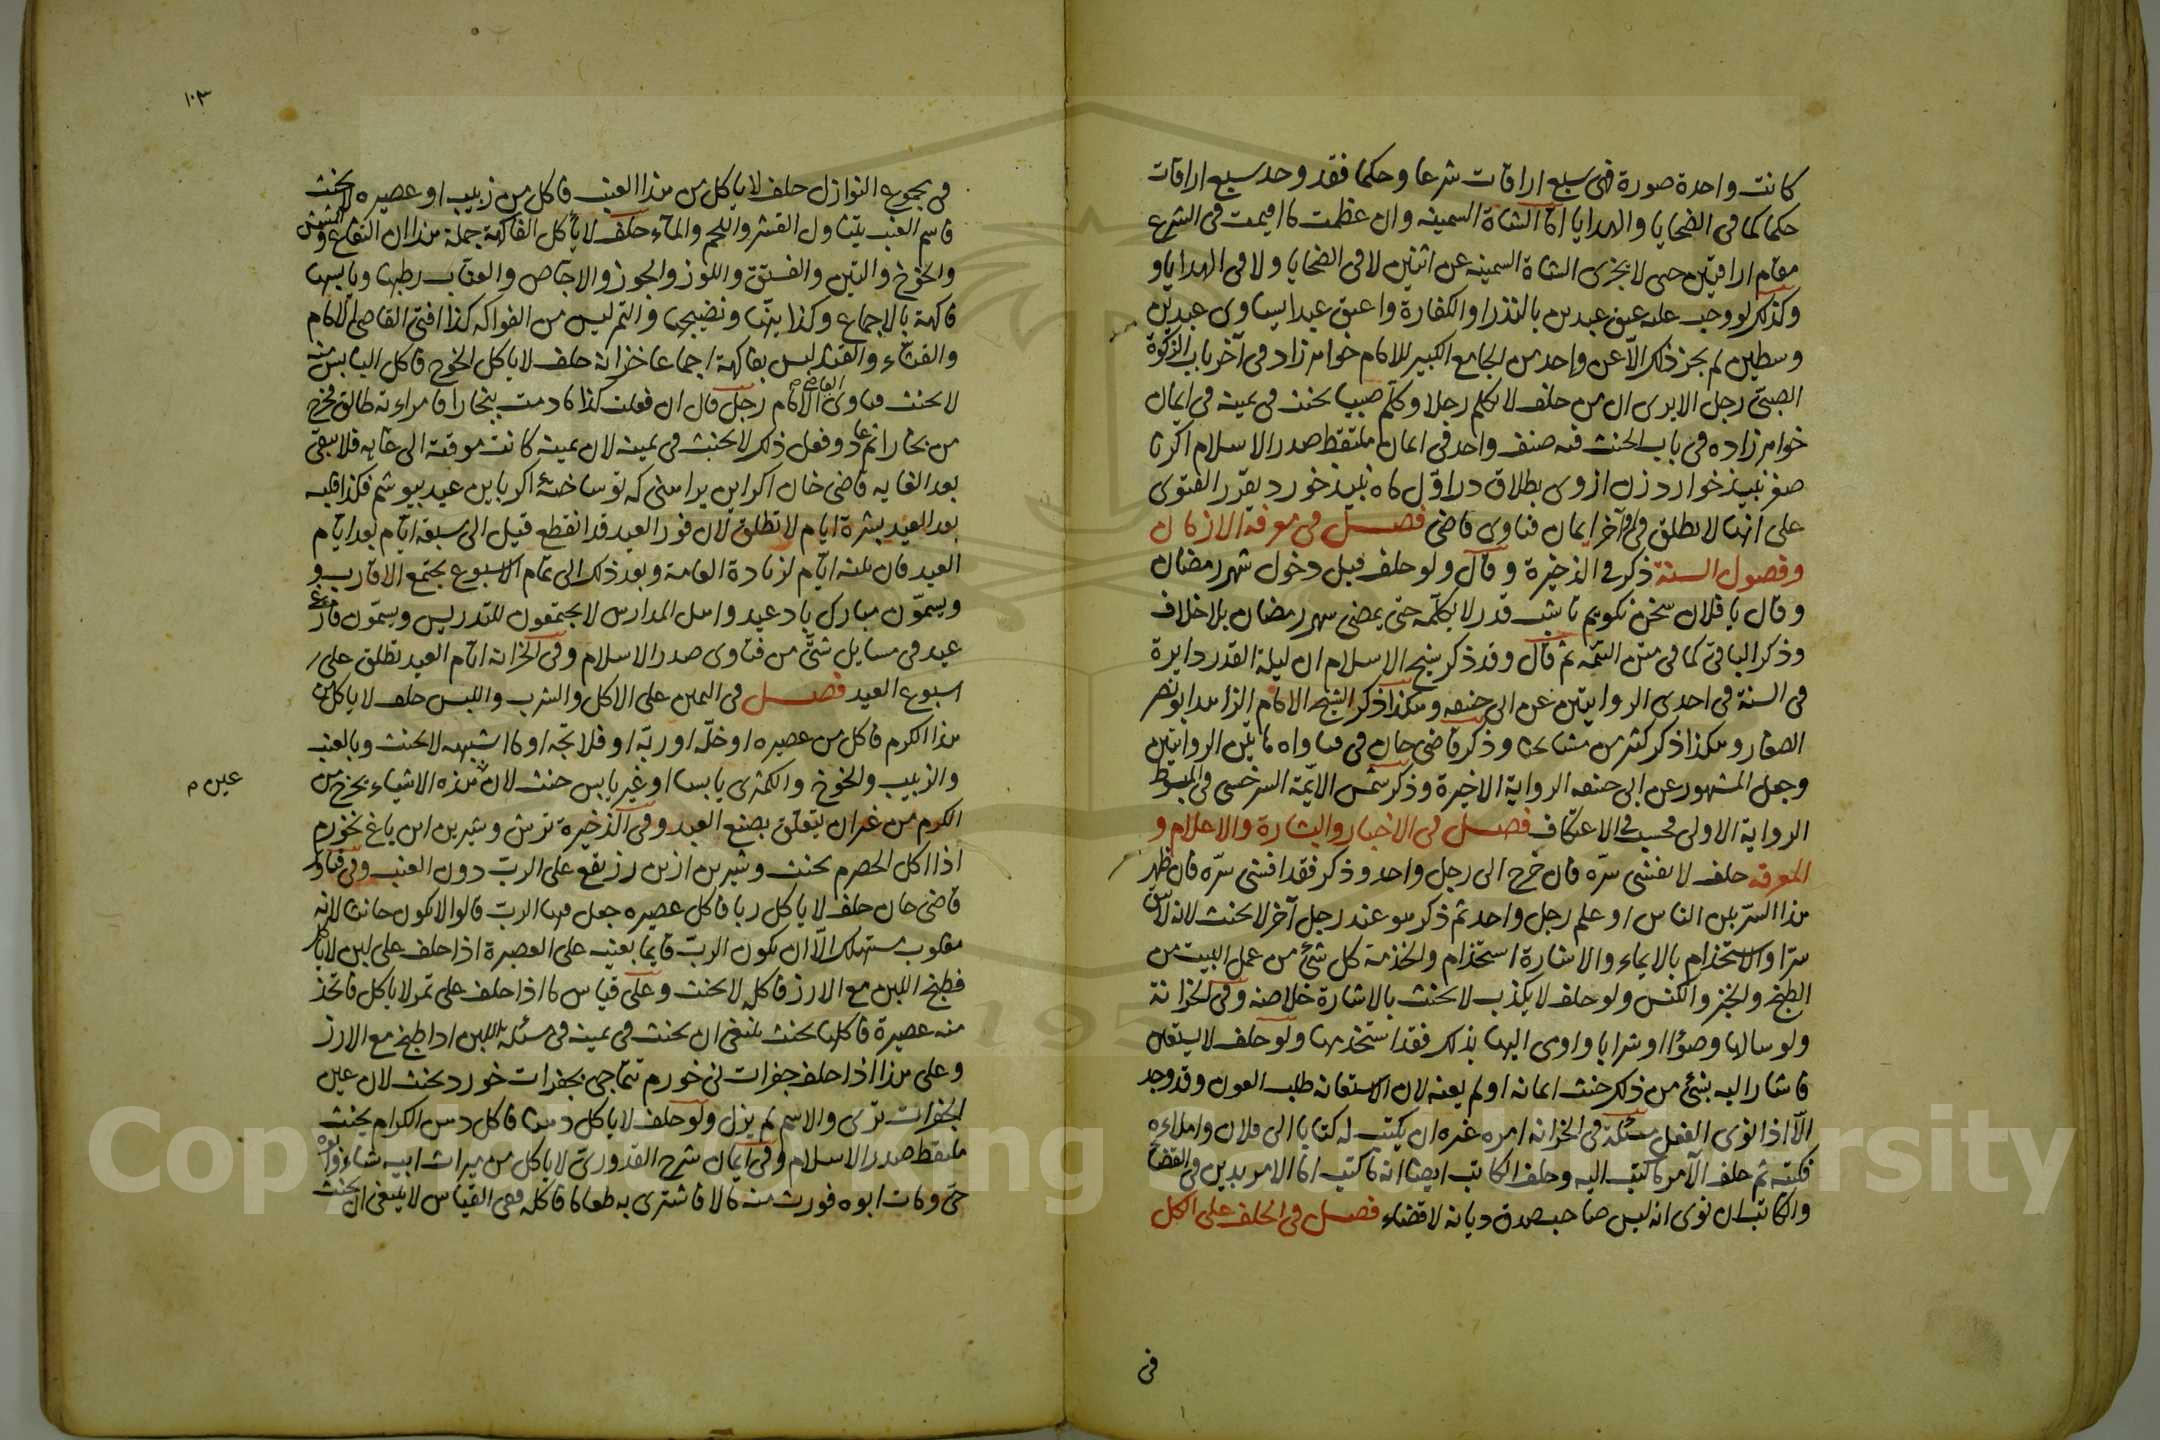 كانت واحدة صورة فهى سبع اراقات شرعا وحكما فقد وجد سبع اراقات
حكما كما فى الضحايا والهدايا اما الشاة السمينه وان عظمت ما اقيمت فى الشرع
مقام اراقتين حتى لا تجزى الشاة السمينه عن اثنين لا فى الضحايا ولا فى الهدايا و
وكذلك لو وجب عليه عتق عبدين بالنذر او الكفارة واعتق عبدا يساوى عبدين
وسطين لم يجز ذلك الا عن واحد من الجامع الكبير للامام خواهر زاد فى آخر باب الزكوة
الصبى رجل الا يرى ان من حلف لا يكلم رجلا وكلم صبيا يحنث فى يمينه فى ايمان
خواهر زاده فى باب الحنث فيه صنف واحد فى ايمان ملتقط صدر الاسلام اكر تا
صفر نبيذ خوارد زن ازوى بطلاق در اول ماه نبيذ خورد يقرر الفتوى
على انها لا تطلق فى آخر ايمان فتاوى قاضى فصل فى معرفة الازمان
وفصول السنة ذكر فى الذخيرة وقال ولو حلف قبل دخول شهر رمضان
وقال با فلان سخن نكويم تا شب قدر لا يكلمه حتى يمضى شهر رمضان بلا خلاف
وذكر الباقى كما فى متن التتمة ثم قال وقد ذكر شيخ الاسلام ان ليلة القدر دايرة
فى السنة فى احدى الروايتين عن ابى حنيفه وهكذا ذكر الشيخ الامام الزاهد ابو نصر
الصفار وهكذا ذكر كثير من مشايخنا وذكر قاضى خان فى فتاواه ما بين الروايتين
وجعل المشهور عن ابى حنيفه الرواية الاخيرة وذكر شمس الايمة السرخسى فى المبسوط
الرواية الاولى فحسب فى الاعتكاف فصل فى الاخبار والبشارة والاعلام و
المعرفه حلف لا يفشى سره فان خرج الى رجل واحد وذكر فقد افشى سره فان ظهر
هذا السر بين الناس او علم رجل واحد ثم ذكر هو عند رجل آخر لا يحنث لانه لا يبقى
سرا والاستخدام بالايماء والاشارة استخدام والخدمة كل شئ من عمل البيت من
الطبخ والخبز والكنس ولو حلف لا يكذب لا يحنث بالاشارة خلاصه وفى الخزانة
ولو سالها وضوءا او شرابا واومى اليها بذلك فقد استخدمها ولو حلف لا يستعين
فاشار اليه بشئ من ذلك حنث اعانه او لم يعنه لان الاستعانه طلب العون وقد وجد
الا اذا نوى الفعل مسئلة فى الخزانة امره غيره ان يكتب له كتابا الى فلان واملاءه
فكتبه ثم حلف الآمر ما كتب اليه وحلف الكاتب ايضا انه ما كتب اما الامر يدين فى القضاء
والكاتب ان نوى انه ليس صاحبه صدق ديانة لا قضاء فصل فى الحلف على الاكل
فى
١٠٣
فى مجموع النوازل حلف لا ياكل من هذا العنب فاكل من زبيبه او عصيره لا يحنث
فاسم العنب يتناول القشر واللحم والماء حلف لا يأكل الفاكهة جملة هذا ان التفاح والمشمش
والخوخ والتين والفستق واللوز والجوز والاجاص والعناب رطبها ويابسها
فاكهة بالاجماع وكذا نيها ونضيجها والتمر ليس من الفواكه كذا افتى القاضى الامام
والقثاء والقثد ليس بفاكهة اجماعا خزانة حلف لا ياكل الخوخ فاكل اليابس منه
لا يحنث فتاوى القاضى الامام رجل قال ان فعلت كذا ما دمت ببخارا فامراءته طالق فخرج
من بخارا ثم عاد وفعل ذلك لا يحنث فى يمينه لان يمينه كانت موقتة الى غايه فلا يبقى
بعد الغايه قاضى خان اكر اين پراهنى كه تو ساخته اكر باين عيد بپوشم فكذا فلبسه
بعد العيد بعشرة ايام لا تطلق لان فور العيد قد انقطع قيل الى سبعة ايام بعد ايام
العيد فان ثلثه ايام لزيادة العامة وبعد ذلك الى تمام الاسبوع يجتمع الاقارب و
ويسمون مبارك باد عيد واهل المدارس لا يجتمعون للتدريس ويسمون فارغ
عيد فى مسايل شتى من فتاوى صدر الاسلام وفى الخزانة ايام العيد تطلق على
اسبوع العيد فصل فى اليمين على الاكل والشرب واللبس حلف لا ياكل من
هذا الكرم فاكل من عصيره او خله او ربه او فلاتجه او ما اشبهه لا يحنث وبالعنب
والزبيب والخوخ والكمثرى يابسا او غير يابس حنث لان هذه الاشياء يخرج من
عين م
الكرم من غير ان يتعلق بصنع العبد وفى الذخيرة ترش وشيرين اين باغ نخورم
اذا اكل الحصرم يحنث وشيرين ازين رز يقع على الرب دون العنب وفى فتاوى
قاضى خان حلف لا ياكل ربا فاكل عصيره جعل فيها الرب قالوا لا يكون حانثا لانه
مغلوب مستهلك الا ان يكون الرب قايما بعينه على العصيرة اذا حلف على لبن لا ياكل
فطبخ اللبن مع الارز فاكله لا يحنث وعلى قياس ما اذا حلف على تمر لا ياكل فاتخذ
منه عصيرة فاكلها يحنث ينبغى ان يحنث فى يمينه فى مسئلة اللبن اذا طبخ مع الارز
وعلى هذا اذا حلف جغرات نى خورم تتماجى بجغرات خورد يحنث لان عين
الجغرات ترى والاسم لم يزل ولو حلف لا ياكل دبسا فاكل دبس الكرم يحنث
ملتقط صدر الاسلام وفى ايمان شرح القدورى لا ياكل من ميراث ابيه شاء وابوه
حى ومات ابوه فورث منه مالا فاشترى به طعاما فاكله ففى القياس لا ينبغى ان يحنث